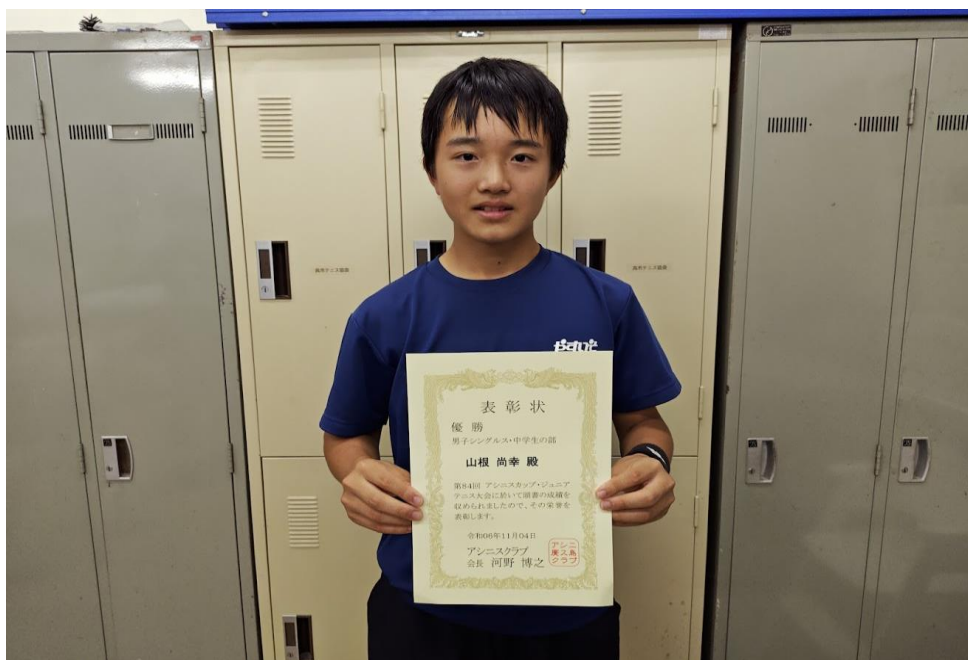 やすいそ
表彰状
優勝
男子シングルス・中学生の部
山根 尚幸 殿
第84回 アシニスカップ・ジュニア
テニス大会に於いて頭書の成績を
収められましたので、その栄誉を
表彰します。
令和06年11月04日
アシニスクラブ
会長 河野 博之
アシニ
廣ス島
クラブ